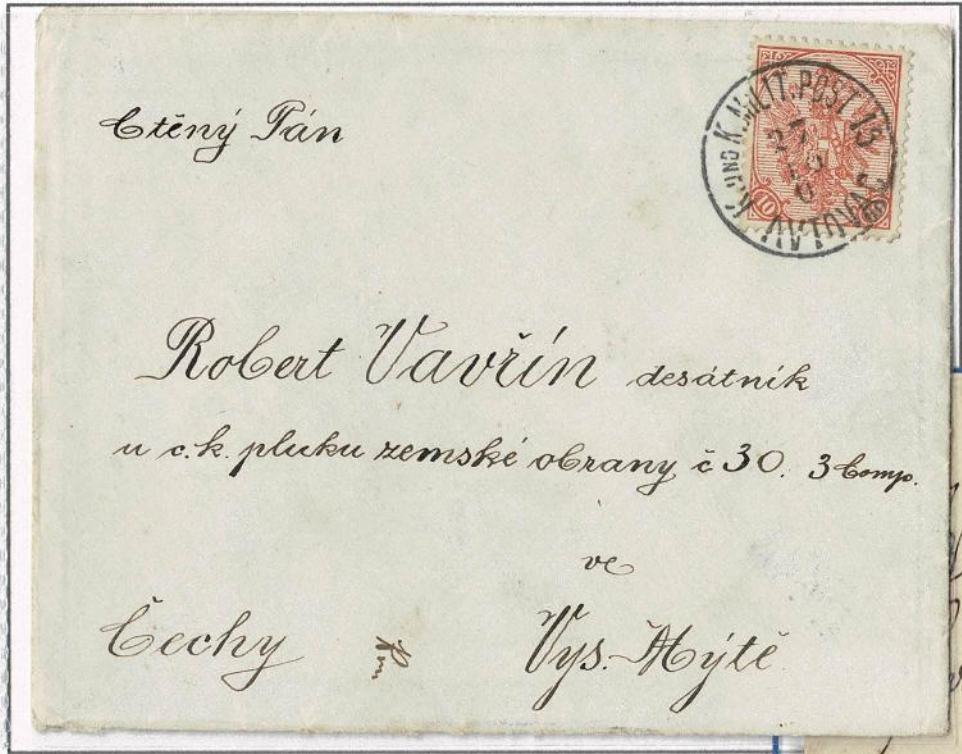 Ctěný Pán
K. UND K. MILIT. POST 13
27
AVTOVAC
10
Robert Vavřín desátník
u c. k. pluku zemské obrany č 30. 3 Comp.
ve
Čechy
Vys. Mýtě